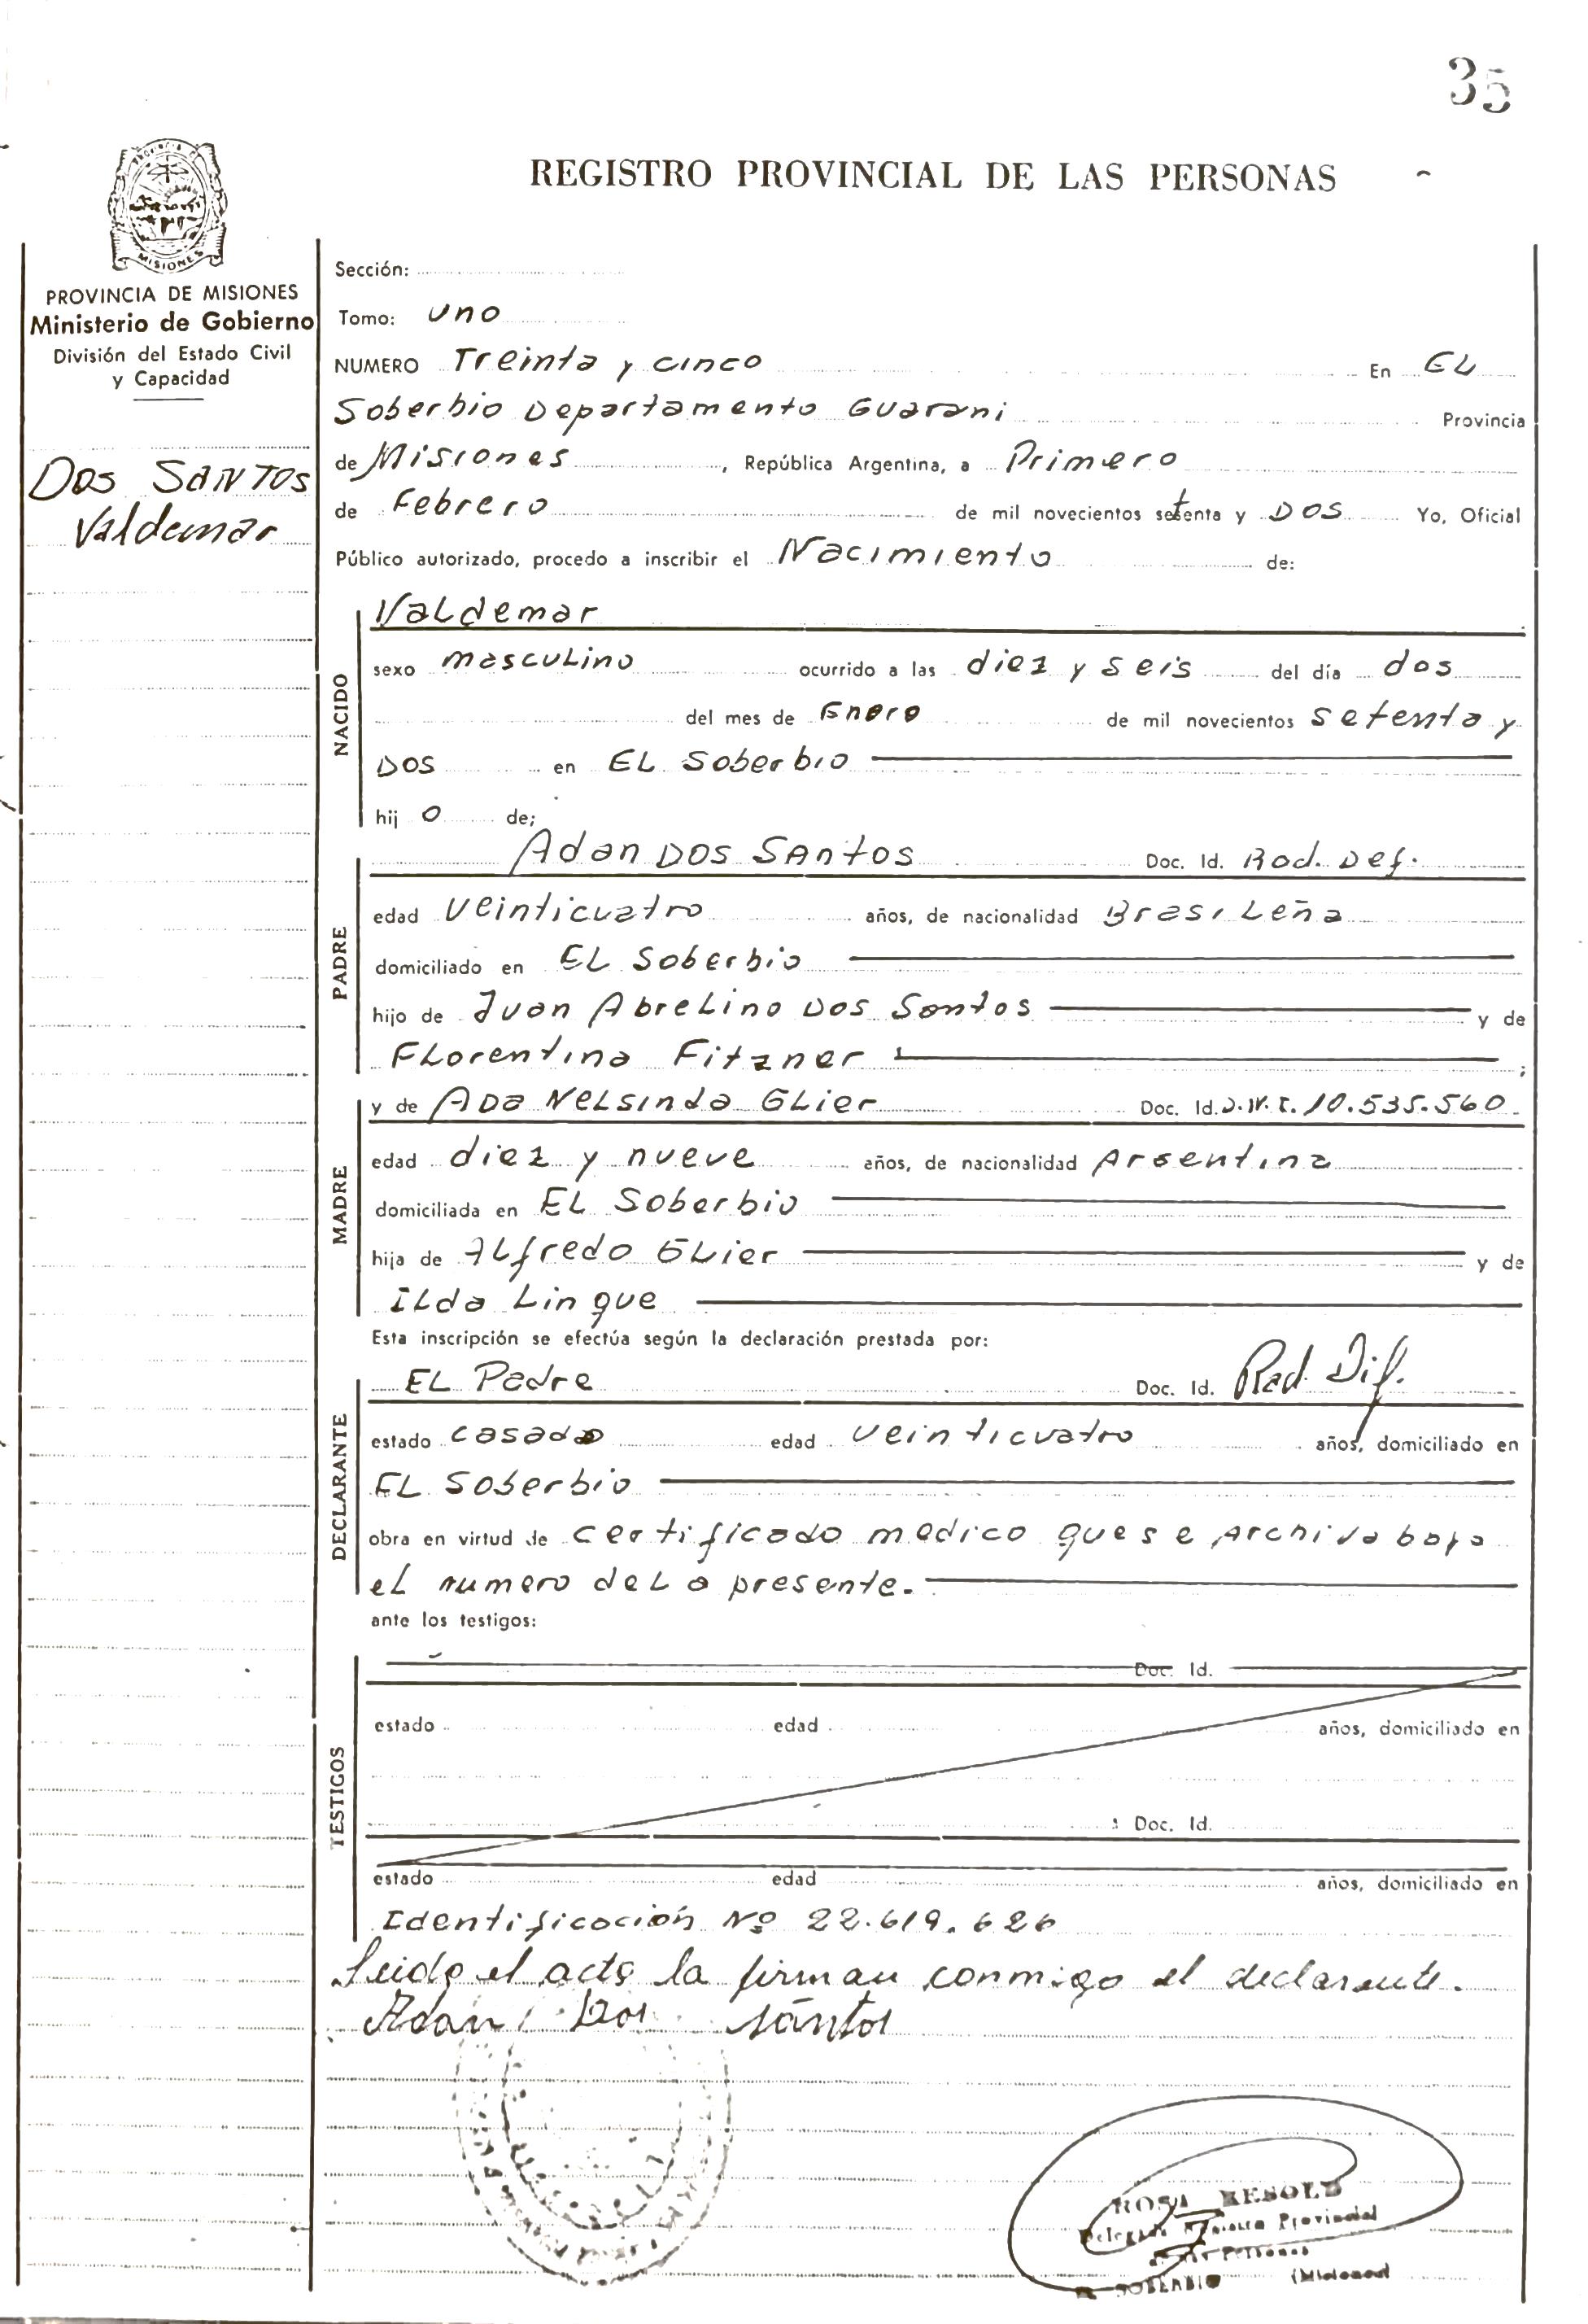 35
REGISTRO PROVINCIAL DE LAS PERSONAS
MISIONES
PROVINCIA DE MISIONES
Ministerio de Gobierno
División del Estado Civil
y Capacidad
DOS SANTOS
Valdemar
Sección:
Tomo: uno
NUMERO Treinta y cinco En EL
Soberbio Departamento Guarani Provincia
de Misiones, República Argentina, a Primero
de Febrero de mil novecientos setenta y DOS Yo, Oficial
Público autorizado, procedo a inscribir el Nacimiento de:
NACIDO
Valdemar
sexo masculino ocurrido a las diez y seis del día dos
del mes de Enero de mil novecientos setenta y
DOS en EL Soberbio
hij o de;
PADRE
Adan DOS SAntos Doc. Id. Rad. Def.
edad veinticuatro años, de nacionalidad Brasileña
domiciliado en EL Soberbio
hijo de Juan Abrelino Dos Santos y de
Florentina Fitzner ;
MADRE
y de ADa Nelsinda Glier Doc. Id. D.N.I. 10.535.560
edad diez y nueve años, de nacionalidad Argentina
domiciliada en EL Soberbio
hija de ALfredo GLier y de
ILda Linque
Esta inscripción se efectúa según la declaración prestada por:
DECLARANTE
EL Padre Doc. Id. Rad. Dif.
estado casado edad veinticuatro años, domiciliado en
EL Soberbio
obra en virtud de certificado medico que se Archiva bajo
el numero de La presente.
ante los testigos:
TESTIGOS
Doc. Id.
estado edad años, domiciliado en
Doc. Id.
estado edad años, domiciliado en
Identificación Nº 22.619.626
Leida el acta la firman conmigo el declarante.
Adan Dos santos
ROSA
Provincial
de las Personas
EL SOBERBIO (Misiones)